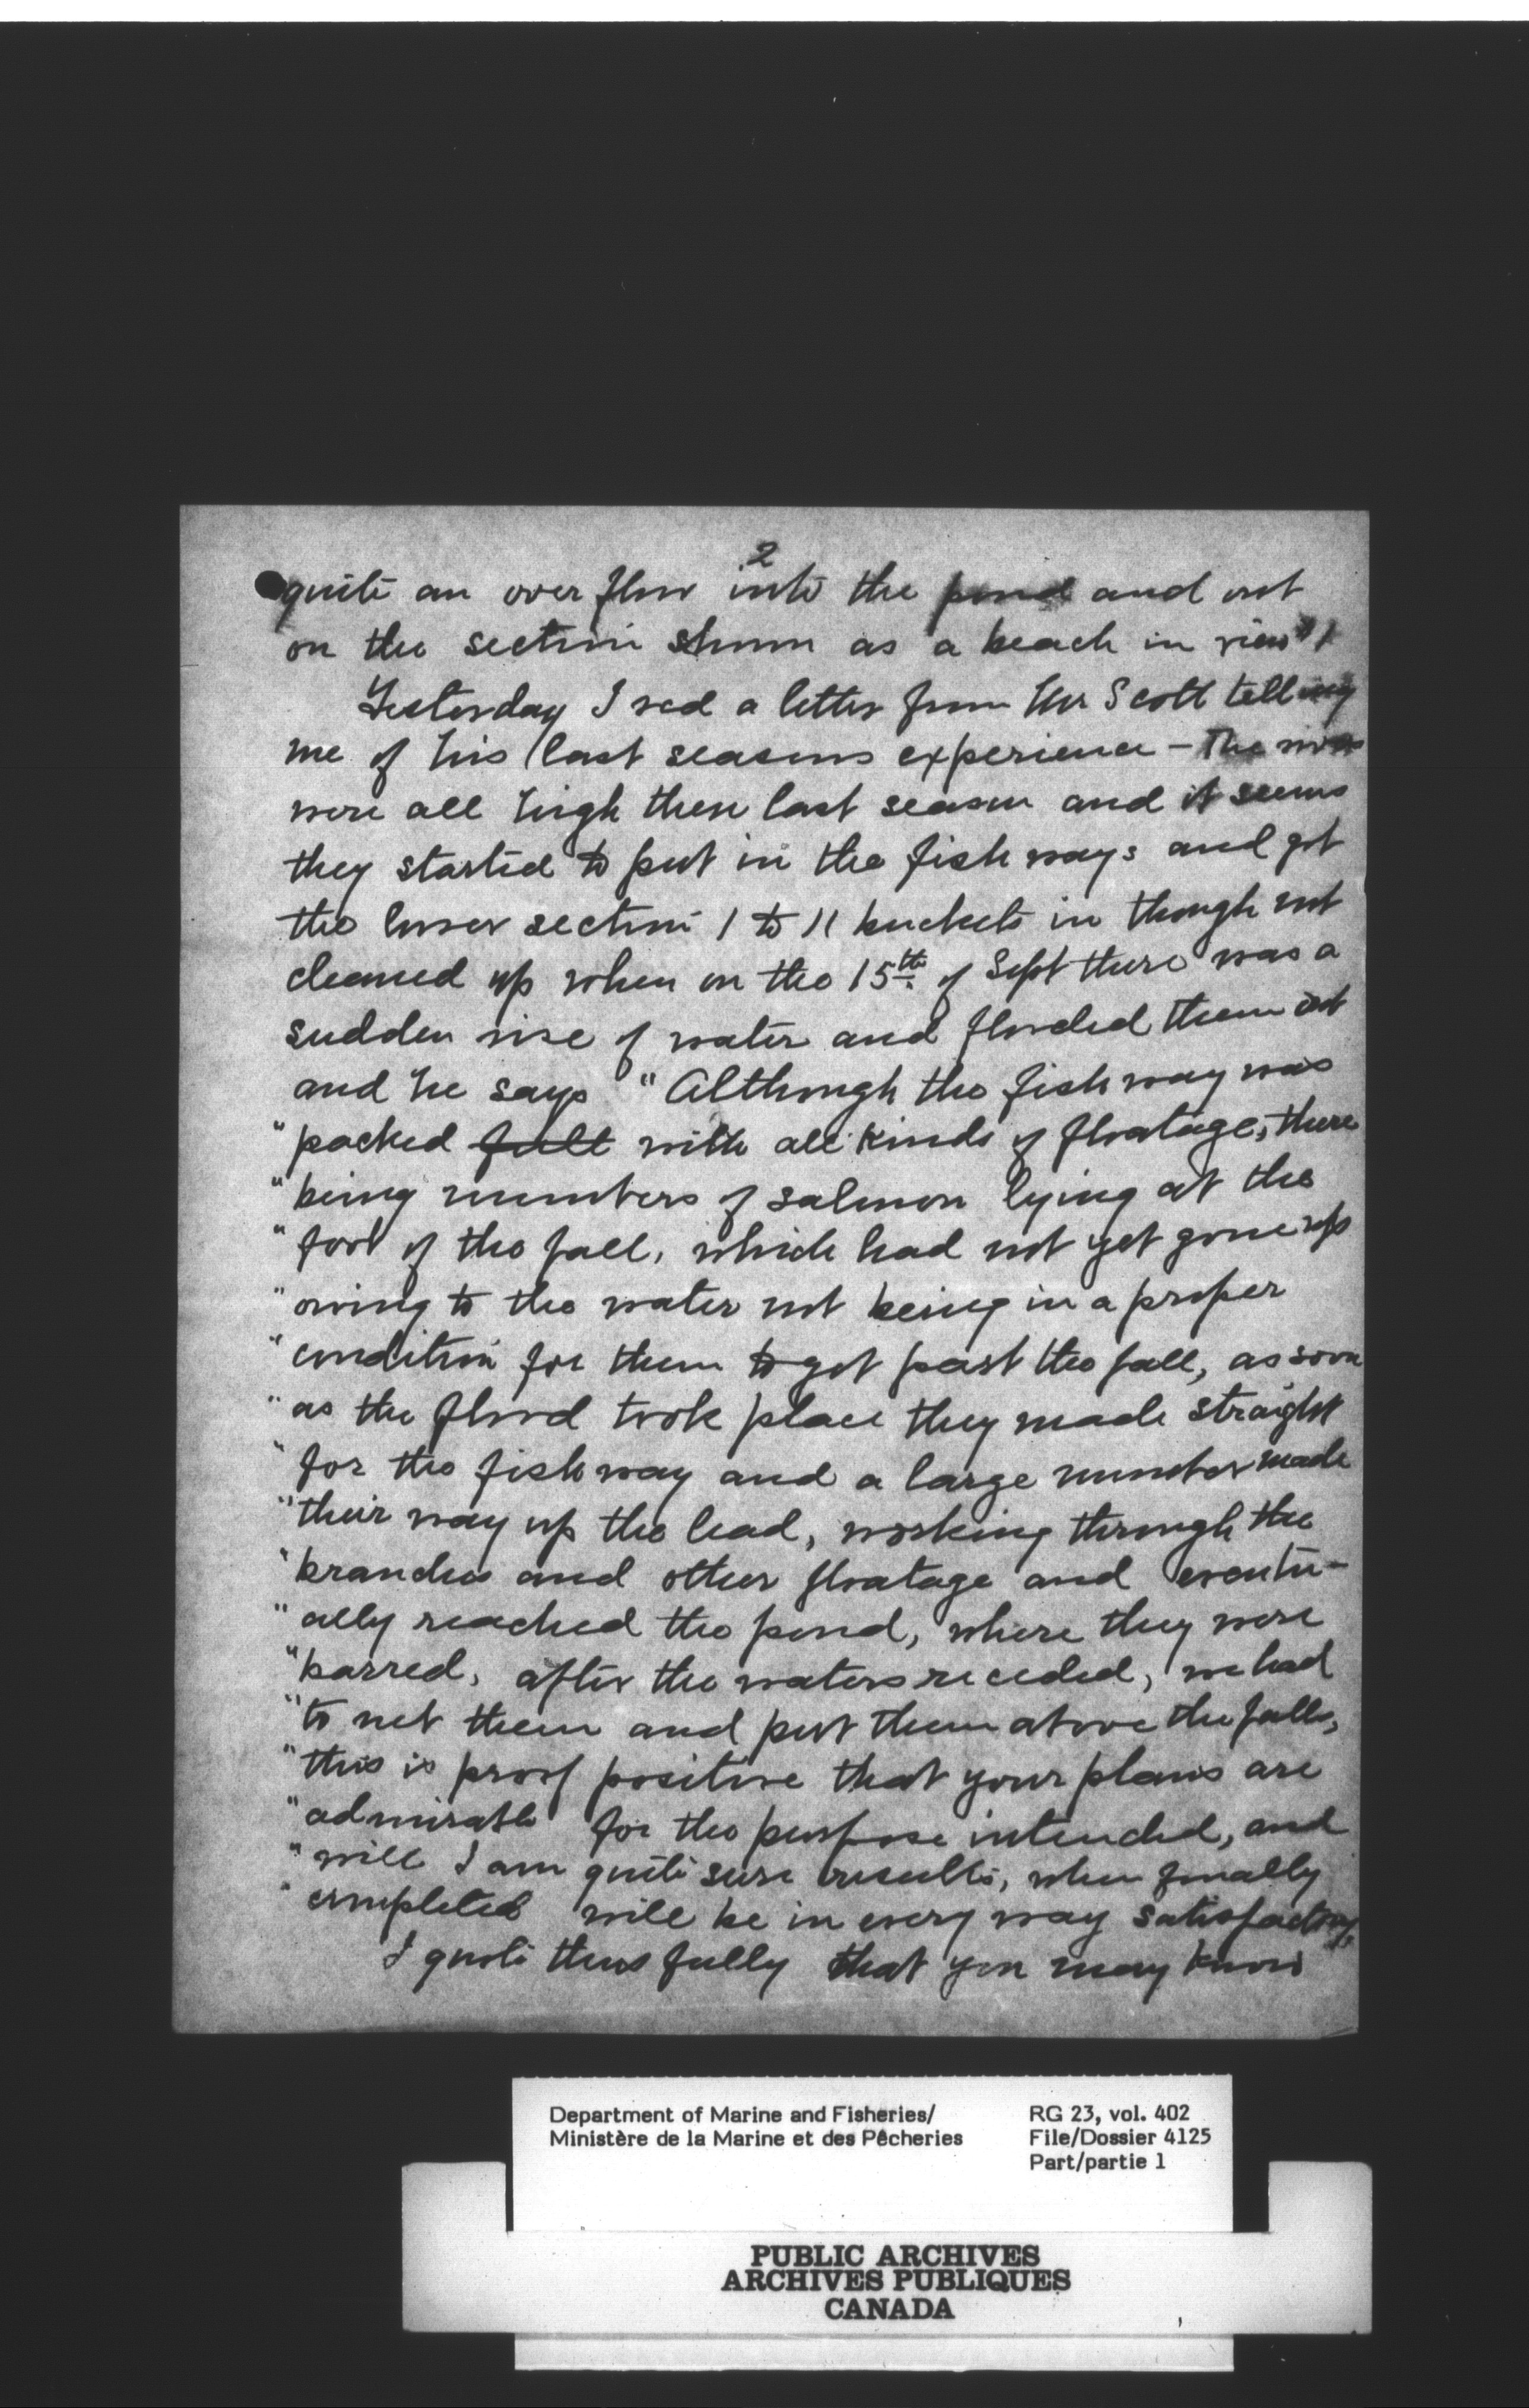 2
quite an over flow into the pond and out
on the section shown as a beach in view #1
Yesterday I recd a letter from Mr Scott telling
me of his last seasons experience - The rivers
were all high there last season and it seems
they started to put in the fish ways and got
the lower section 1 to 11 buckets in though not
cleaned up when on the 15th of Sept there was a
sudden rise of water and flooded them out
and he says "Although the fish way was
"packed full with all kinds of floatage, there
"being numbers of salmon lying at the
"foot of the fall, which had not yet gone up
"owing to the water not being in a proper
"condition for them to get past the fall, as soon
"as the flood took place they made straight
"for the fish way and a large number made
"their way up the lead, working through the
"branches and other floatage and eventu-
"ally reached the pond, where they were
"barred, after the waters receded, we had
"to net them and put them above the falls,
"this is proof positive that your plans are
"admirable for the purpose intended, and
"will I am quite sure results, when finally
"completed will be in every way satisfactory,
I quote thus fully that you may know
Department of Marine and Fisheries/
Ministère de la Marine et des Pêcheries
RG 23, vol. 402
File/Dossier 4125
Part/partie 1
PUBLIC ARCHIVES
ARCHIVES PUBLIQUES
CANADA